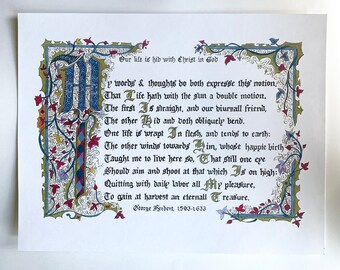 Our life is hid with Christ in God
My words & thoughts do both expresse this notion,
That Life hath with the sun a double motion.
The first Is straight, and our diurnall friend,
The other Hid and doth obliquely bend.
One life is wrapt In flesh, and tends to earth:
The other winds towards Him, whose happie birth
Taught me to live here so, That still one eye
Should aim and shoot at that which Is on high:
Quitting with daily labor all My pleasure,
To gain at harvest an eternall Treasure.
George Herbert, 1593-1633